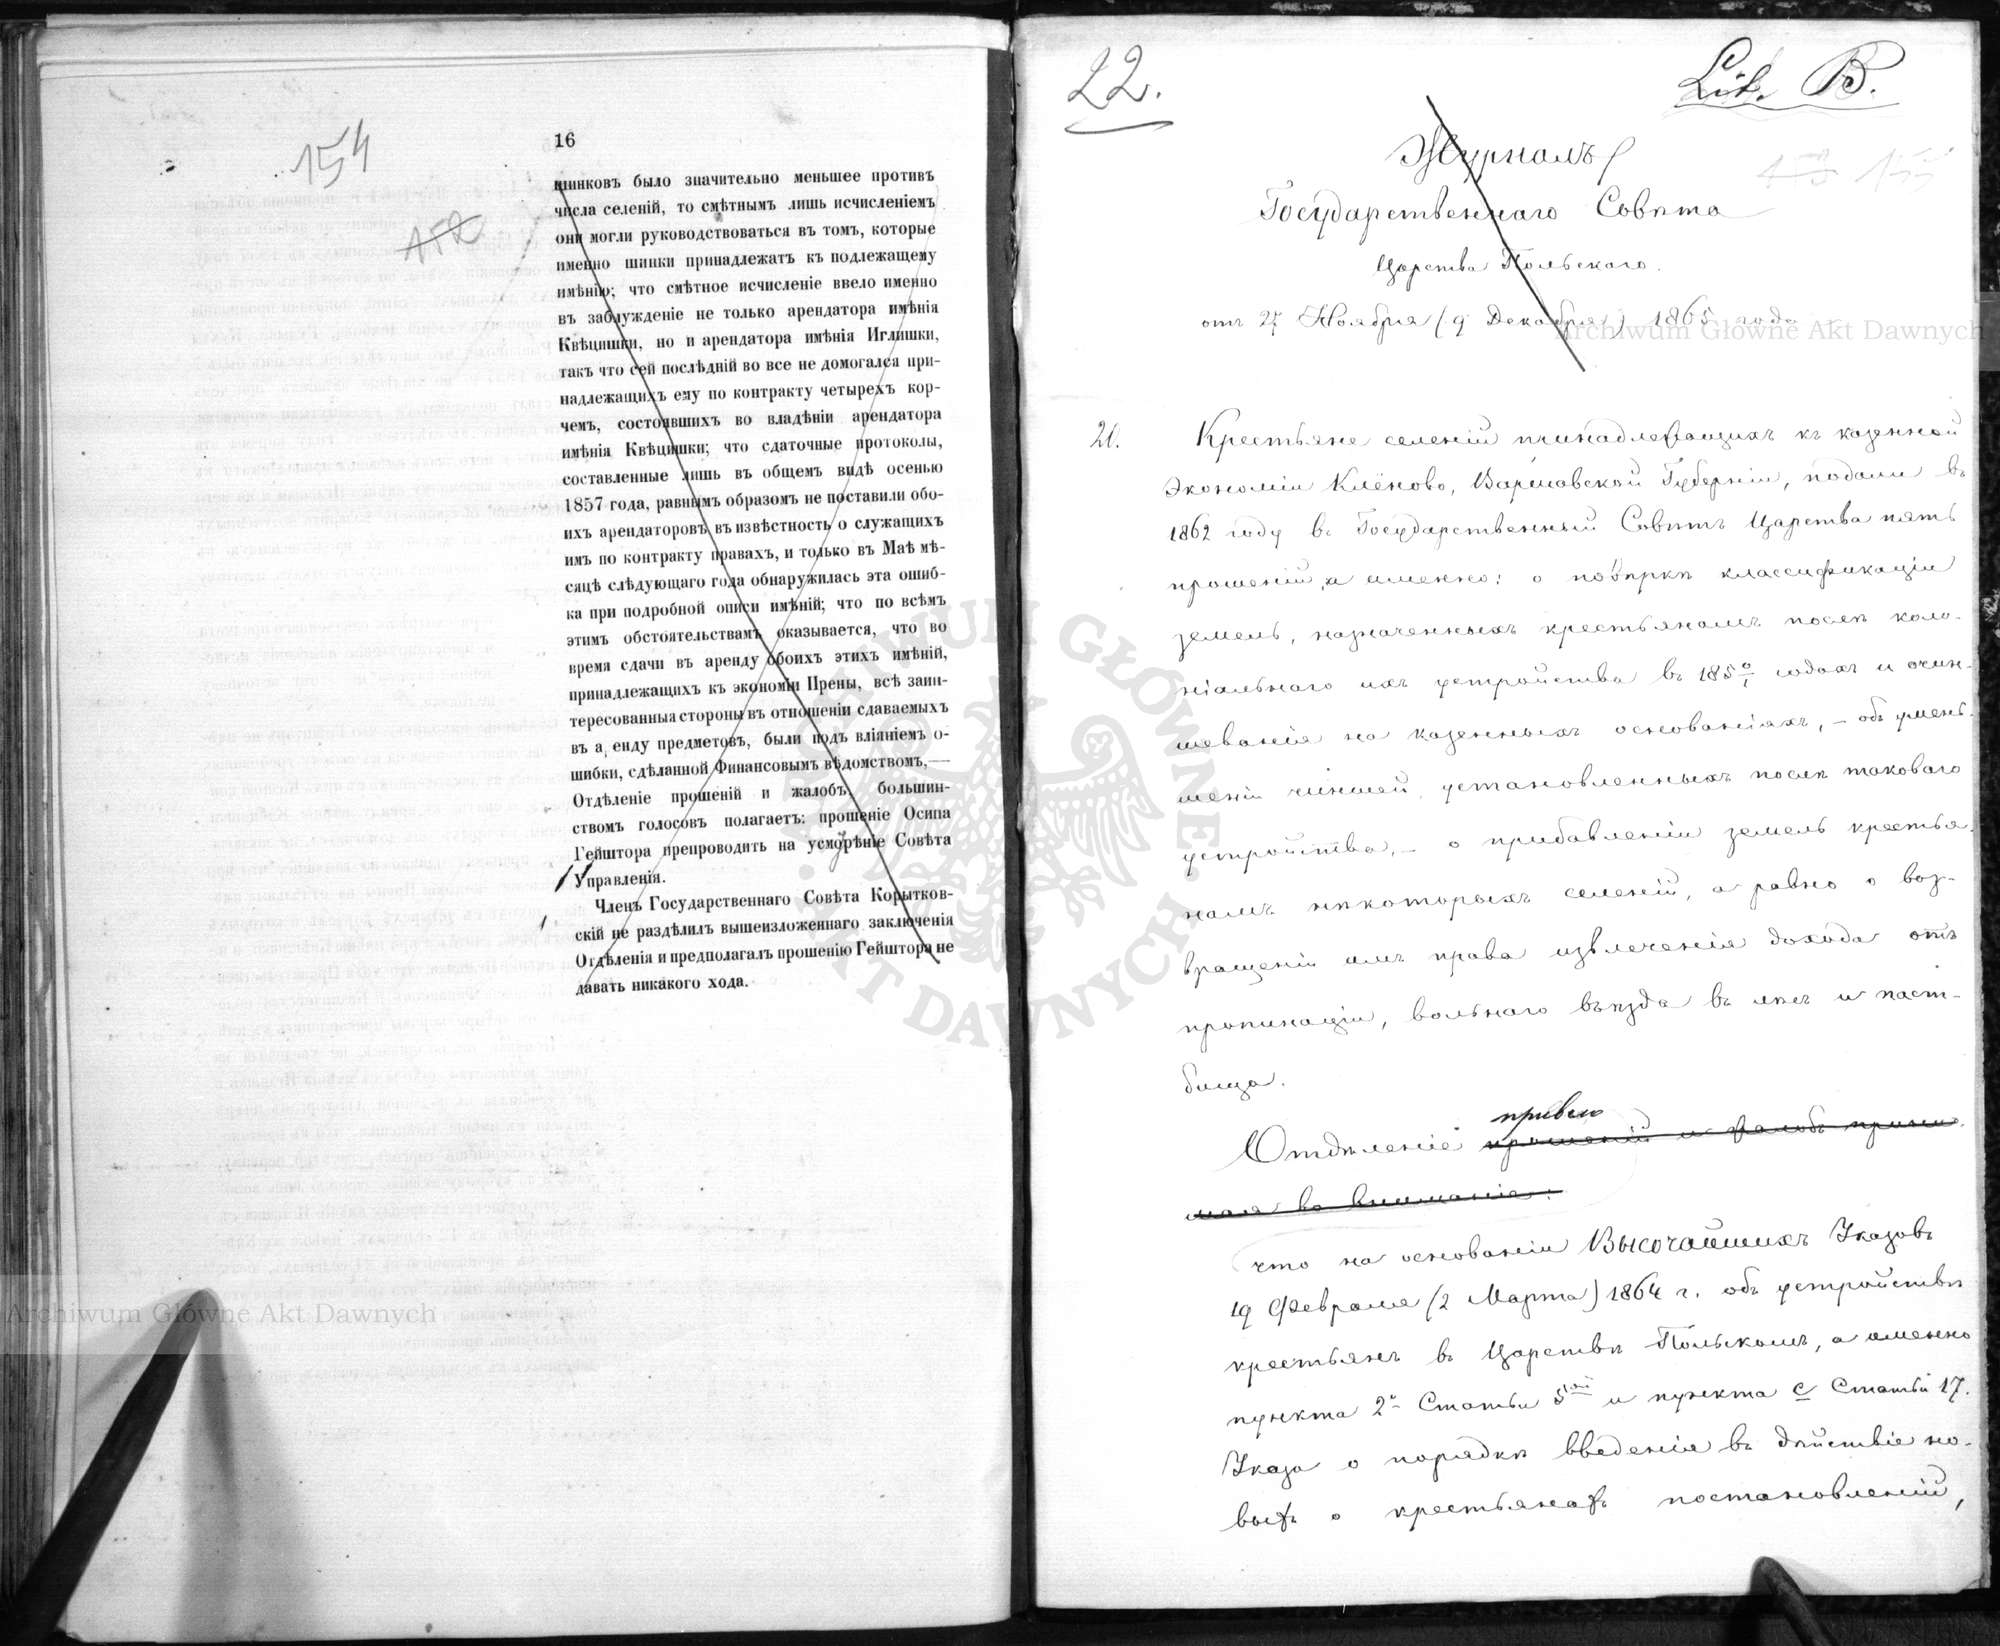 154
152
16
шинковъ было значительно меньшее противъ
числа селеній, то смѣтнымъ лишь исчисленіемъ
они могли руководствоваться въ томъ, которые
именно шинки принадлежатъ къ подлежащему
имѣнію; что смѣтное исчисленіе ввело именно
въ заблужденіе не только арендатора имѣнія
Квѣцишки, но и арендатора имѣнія Иглишки,
такъ что сей послѣдній во все не домогался при-
надлежащихъ ему по контракту четырехъ кор-
чемъ, состоявшихъ во владѣніи арендатора
имѣнія Квѣцишки; что сдаточные протоколы,
составленные лишь въ общемъ видѣ осенью
1857 года, равнымъ образомъ не поставили обо-
ихъ арендаторовъ въ извѣстность о служащихъ
имъ по контракту правахъ, и только въ Маѣ мѣ-
сяцѣ слѣдующаго года обнаружилась эта ошиб-
ка при подробной описи имѣній; что по всѣмъ
этимъ обстоятельствамъ оказывается, что во
время сдачи въ аренду обоихъ этихъ имѣній,
принадлежащихъ къ экономіи Прены, всѣ заин-
тересованныя стороны въ отношеніи сдаваемыхъ
въ а енду предметовъ, были подъ вліяніемъ о-
шибки, сдѣланной Финансовымъ вѣдомствомъ,—
Отдѣленіе прошеній и жалобъ, большин-
ствомъ голосовъ полагаетъ: прошеніе Осипа
Гейштора препроводить на усмотрѣніе Совѣта
Управленія.
Членъ Государственнаго Совѣта Корытков-
скій не раздѣлилъ вышеизложеннаго заключенія
Отдѣленія и предполагалъ прошенію Гейштора не
давать никакого хода.
22.
Lit. B.
155
Журналъ
Государственнаго Совѣта
Царства Польскаго.
отъ 27 Ноября (9 Декабря) 1865 года
20. Крестьяне селеній принадлежащихъ къ казенной
Экономіи Клёново, Варшавской Губерніи, подали въ
1862 году въ Государственный Совѣтъ Царства пять
прошеній, а именно: о повѣркѣ классификаціи
земель, назначенныхъ крестьянамъ послѣ коло-
ніальнаго ихъ устройства въ 185 0/1 годахъ и очин-
шеванія на казенныхъ основаніяхъ, — объ умень-
шеніи чиншей, установленныхъ послѣ таковаго
устройства, — о прибавленіи земель крестья-
намъ нѣкоторыхъ селеній, а равно о воз-
вращеніи имъ права извлеченія дохода отъ
пропинаціи, вольнаго въѣзда въ лѣсъ и паст-
бища.
привело
Отдѣленіе прошеній и жалобъ прини-
мая во вниманіе:
что на основаніи Высочайшихъ Указовъ
19 Февраля (2 Марта) 1864 г. объ устройствѣ
крестьянъ въ Царствѣ Польскомъ, а именно
пункта 2го Статьи 5той и пункта с Статьи 17.
Указа о порядкѣ введенія въ дѣйствіе но-
выхъ о крестьянахъ постановленій,
Archiwum Główne Akt Dawnych
Archiwum Główne Akt Dawnych
ARCHIWUM GŁÓWNE AKT DAWNYCH